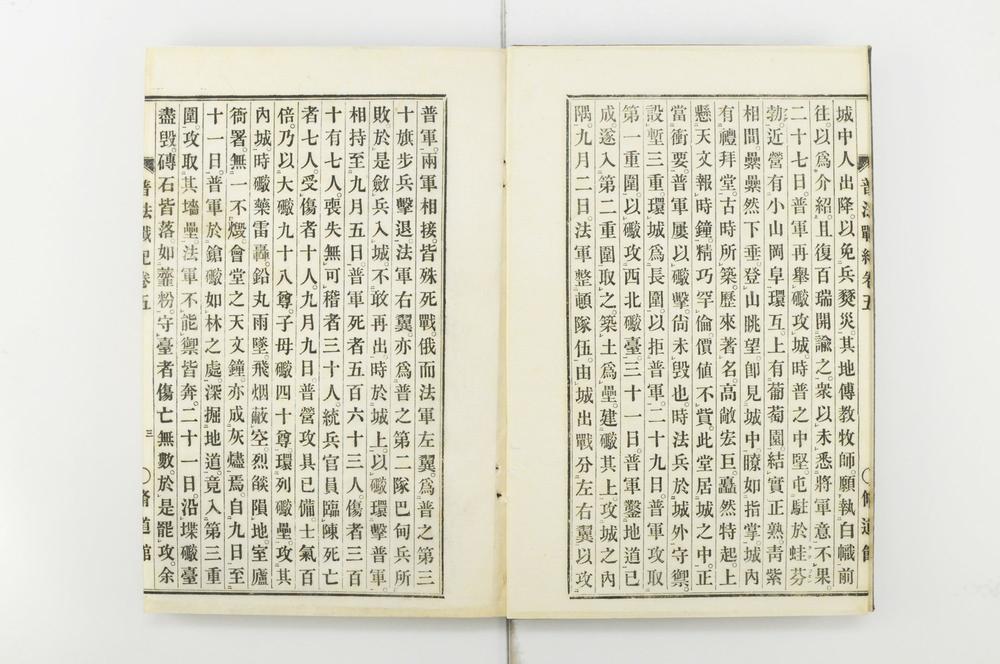 城中人出降。以免兵燹災。其地傳教牧師。願執白幟前
往。以爲介紹。且復百瑞開諭之。衆以未悉將軍意不果
二十七日。普軍再舉礮攻城。時普之中堅。屯駐於蛙芬
勃。近營有小山岡阜環互。上有葡萄園結實正熟。靑紫
相間。纍纍然下垂。登山眺望。卽見城中。瞭如指掌。城內
有禮拜堂。古時所築。歷來著名。高敞宏巨。矗然特起。上
懸天文報時鐘。精巧罕倫。價値不貲。此堂居城之中。正
當衝要。普軍屢以礮擊。尙未毁也。時法兵於城外守禦。
設塹三重。環城爲長圍。以拒普軍。二十九日。普軍攻取
第一重圍。以礮攻西北礮臺。三十一日。普軍鑿地道已
成。遂入第二重圍。取之。築土爲壘。建礮其上。攻城之內
隅。九月二日。法軍整頓隊伍。由城出戰。分左右翼以攻
普法戰紀卷五
脩道館
普軍。兩軍相接。皆殊死戰。俄而法軍左翼。爲普之第三
十旗步兵擊退。法軍右翼。亦爲普之第二隊巴甸兵所
敗。於是斂兵入城。不敢再出。時於城上。以礮環擊普軍
相持至九月五日。普軍死者五百六十三人。傷者三百
十有七人。喪失無可稽者三十人。統兵官員臨陳死亡
者七人。受傷者十人。九月九日。普營攻具已備。士氣百
倍。乃以大礮九十八尊。子母礮四十尊。環列礮壘。攻其
內城。時礮藥雷轟。鉛丸雨墜。飛烟蔽空。烈燄隕地。室廬
衙署。無一不燬。會堂之天文鐘。亦成灰燼焉。自九日至
十一日。普軍於鎗礮如林之處。深掘地道。竟入第三重
圍。攻取其墻壘。法軍不能禦。皆奔。二十一日。沿堞礮臺
盡毁。磚石皆落如虀粉。守臺者傷亡無數。於是罷攻。余
普法戰紀卷五
三
脩道館